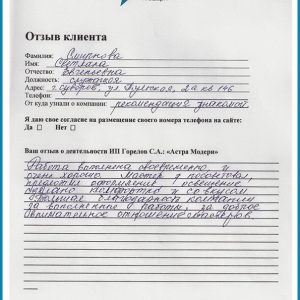 Отзыв клиента
Фамилия: Смирнова
Имя: Светлана
Отчество: Евгеньевна
Должность: служащая
Адрес: г. Суворов, ул. Тульская, 2а кв 146
Телефон:
От куда узнали о компании: рекомендация знакомой
Я даю свое согласие на размещение своего номера телефона на сайте:
Да Нет
Ваш отзыв о деятельности ИП Горелов С.А.: «Астра Модерн»
Работа выполнена своевременно и
очень хорошо. Мастер
освещение
сделано комфортно и со вкусом
Большая благодарность компании
за выполненные работы, за доброе
внимательное отношение мастеров.